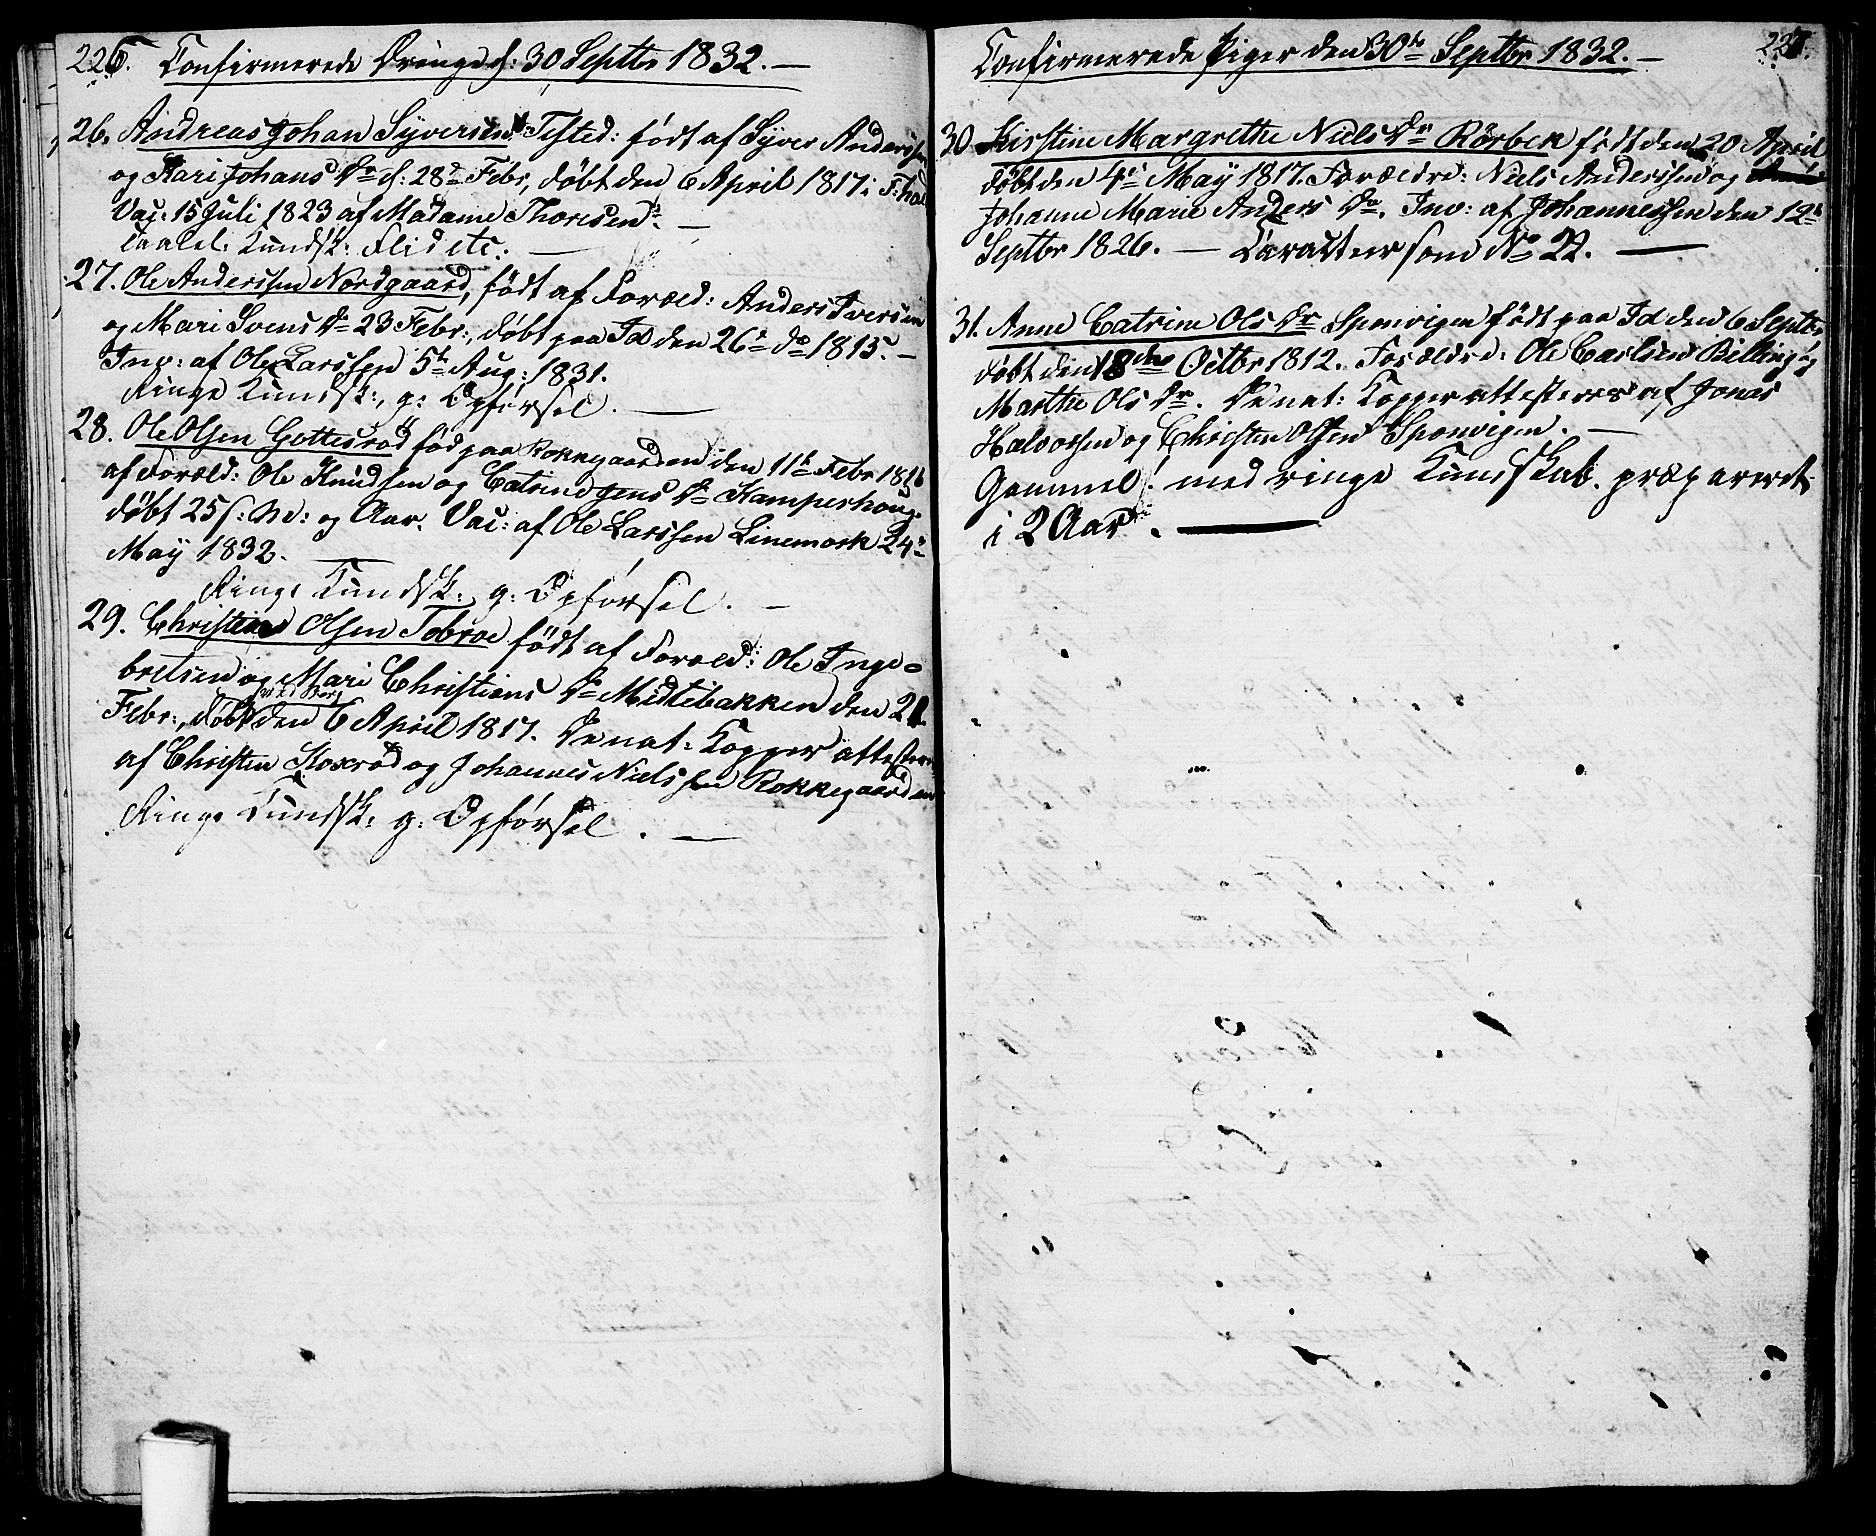 226. Confirmerede Drenge d: 30 Septbr 1832. —
26. Andreas Johan Syversen Tisted: født af Syver Anderssen
og Kari Johans Dr d: 28de Febr, døbt den 6 April 1817 i F:hald
Vac: 15 Juli 1823 af Madame Thoresen. —
Taalel: Kundsk: Flid etc: —
27. Ole Anderssen Nordgaard, født af Foræld: Anders Iversen
og Mari Svens Dr 23 Febr:, døbt paa Id den 26de do 1815. —
Inp: af Ole Larssen 5te Aug: 1831.
Ringe Kundsk:, g: Opførsel. —
28. Ole Olsen Gottesrød fød paa Rokkegaarden den 11te Febr 1816
af Foræld: Ole Knudsen og Catrine Jens Dr Kamperhoug.
døbt 25 s: M: og Aar. Vac: af Ole Larssen Linemark 24de
May 1832. —
Ringe Kundsk: g: Opførsel. —
29. Christian Olsen Tobroe født af Foræld: Ole Inge-
bretsen og Mari Christians Dr Midtebakken den 21
Febr:, døbt ved Berg den 6 April 1817. De nat: Kopper attesteres
af Christen Skoxrød og Johannes Nielssen Rokkegaarden
Ringe Kundsk: g: Opførsel. —
Confirmerede Piger den 30te Septbr 1832. — 227.
30. Kirstine Margrethe Niels Dr Rørbek født den 20 April
døbt den 4de May 1817. Forældre: Niels Anderssen og
Johanne Marie Anders Dr. Inp: af Johannessen den 12te
Septbr 1826. — Caracteer som No 22. —
31. Anne Catrine Ols Dr Sponvigen født paa Id den 6 Septbr
døbt den 18de Octbr 1812. Forældre: Ole Carlsen Billing og
Marthe Ols Dr. De nat: Kopper attesteres af Jonas
Halvorsen og Christen Olsen Sponvigen. —
Gammel! med ringe Kundskab. præpareret
i 2 Aar. —